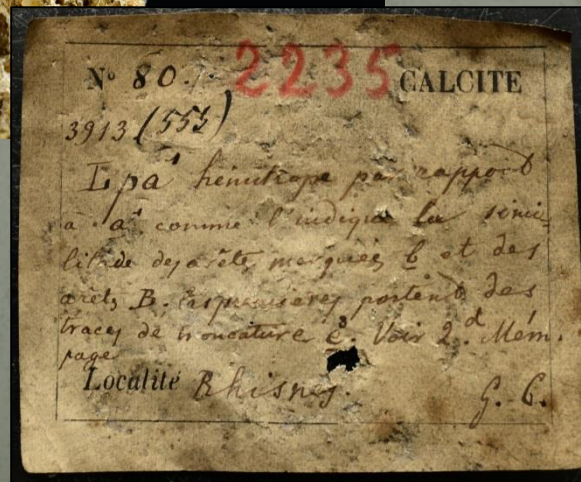 N° 80. 2235 CALCITE
3913 (555)
L p a¹ hémitrope par rapport
à a¹ comme l'indique la simi-
litude des arêtes marquées b et des
arêts B. Les premières portent des
traces de troncature e³. Voir 2.d Mém.
page
Localité Rhisnes. G. C.